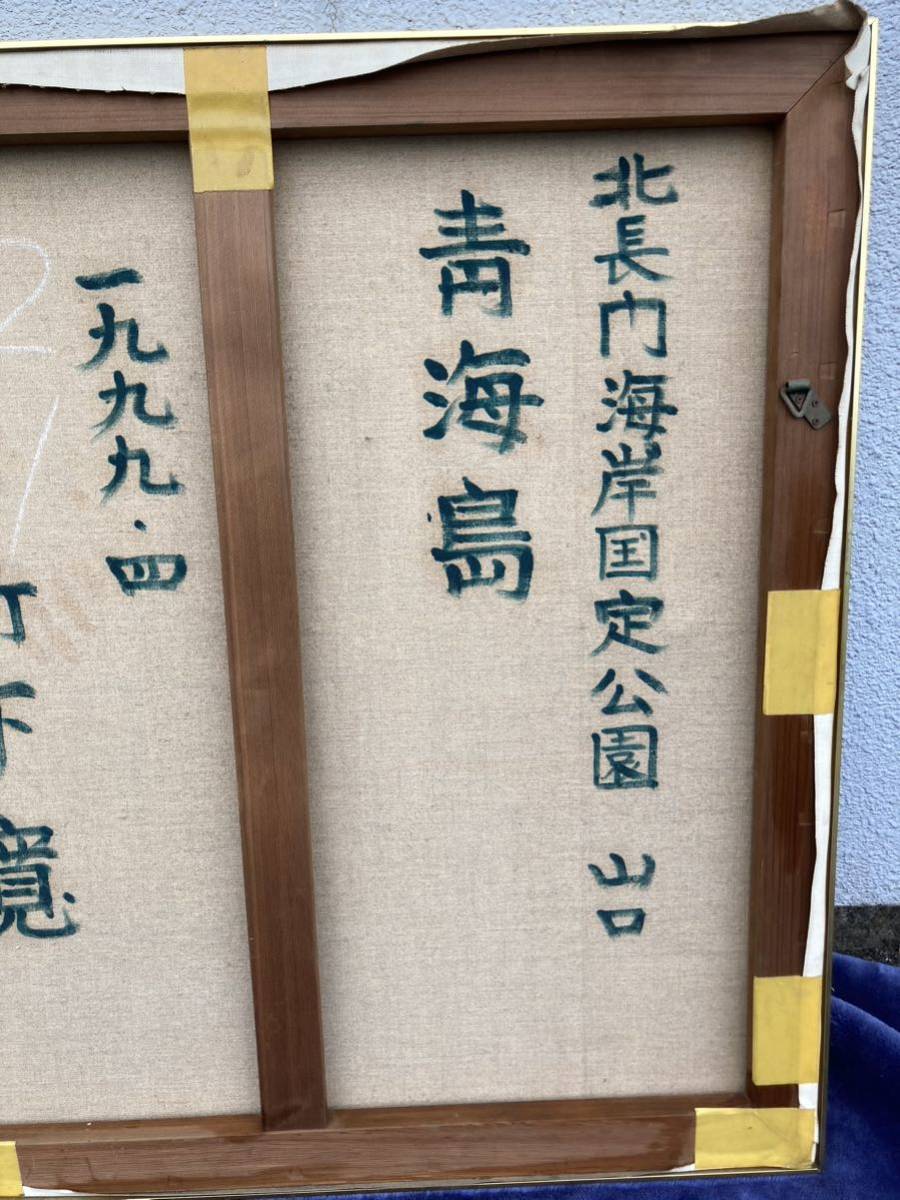 北長門海岸国定公園 山口
青海島
一九九九・四
竹下寛